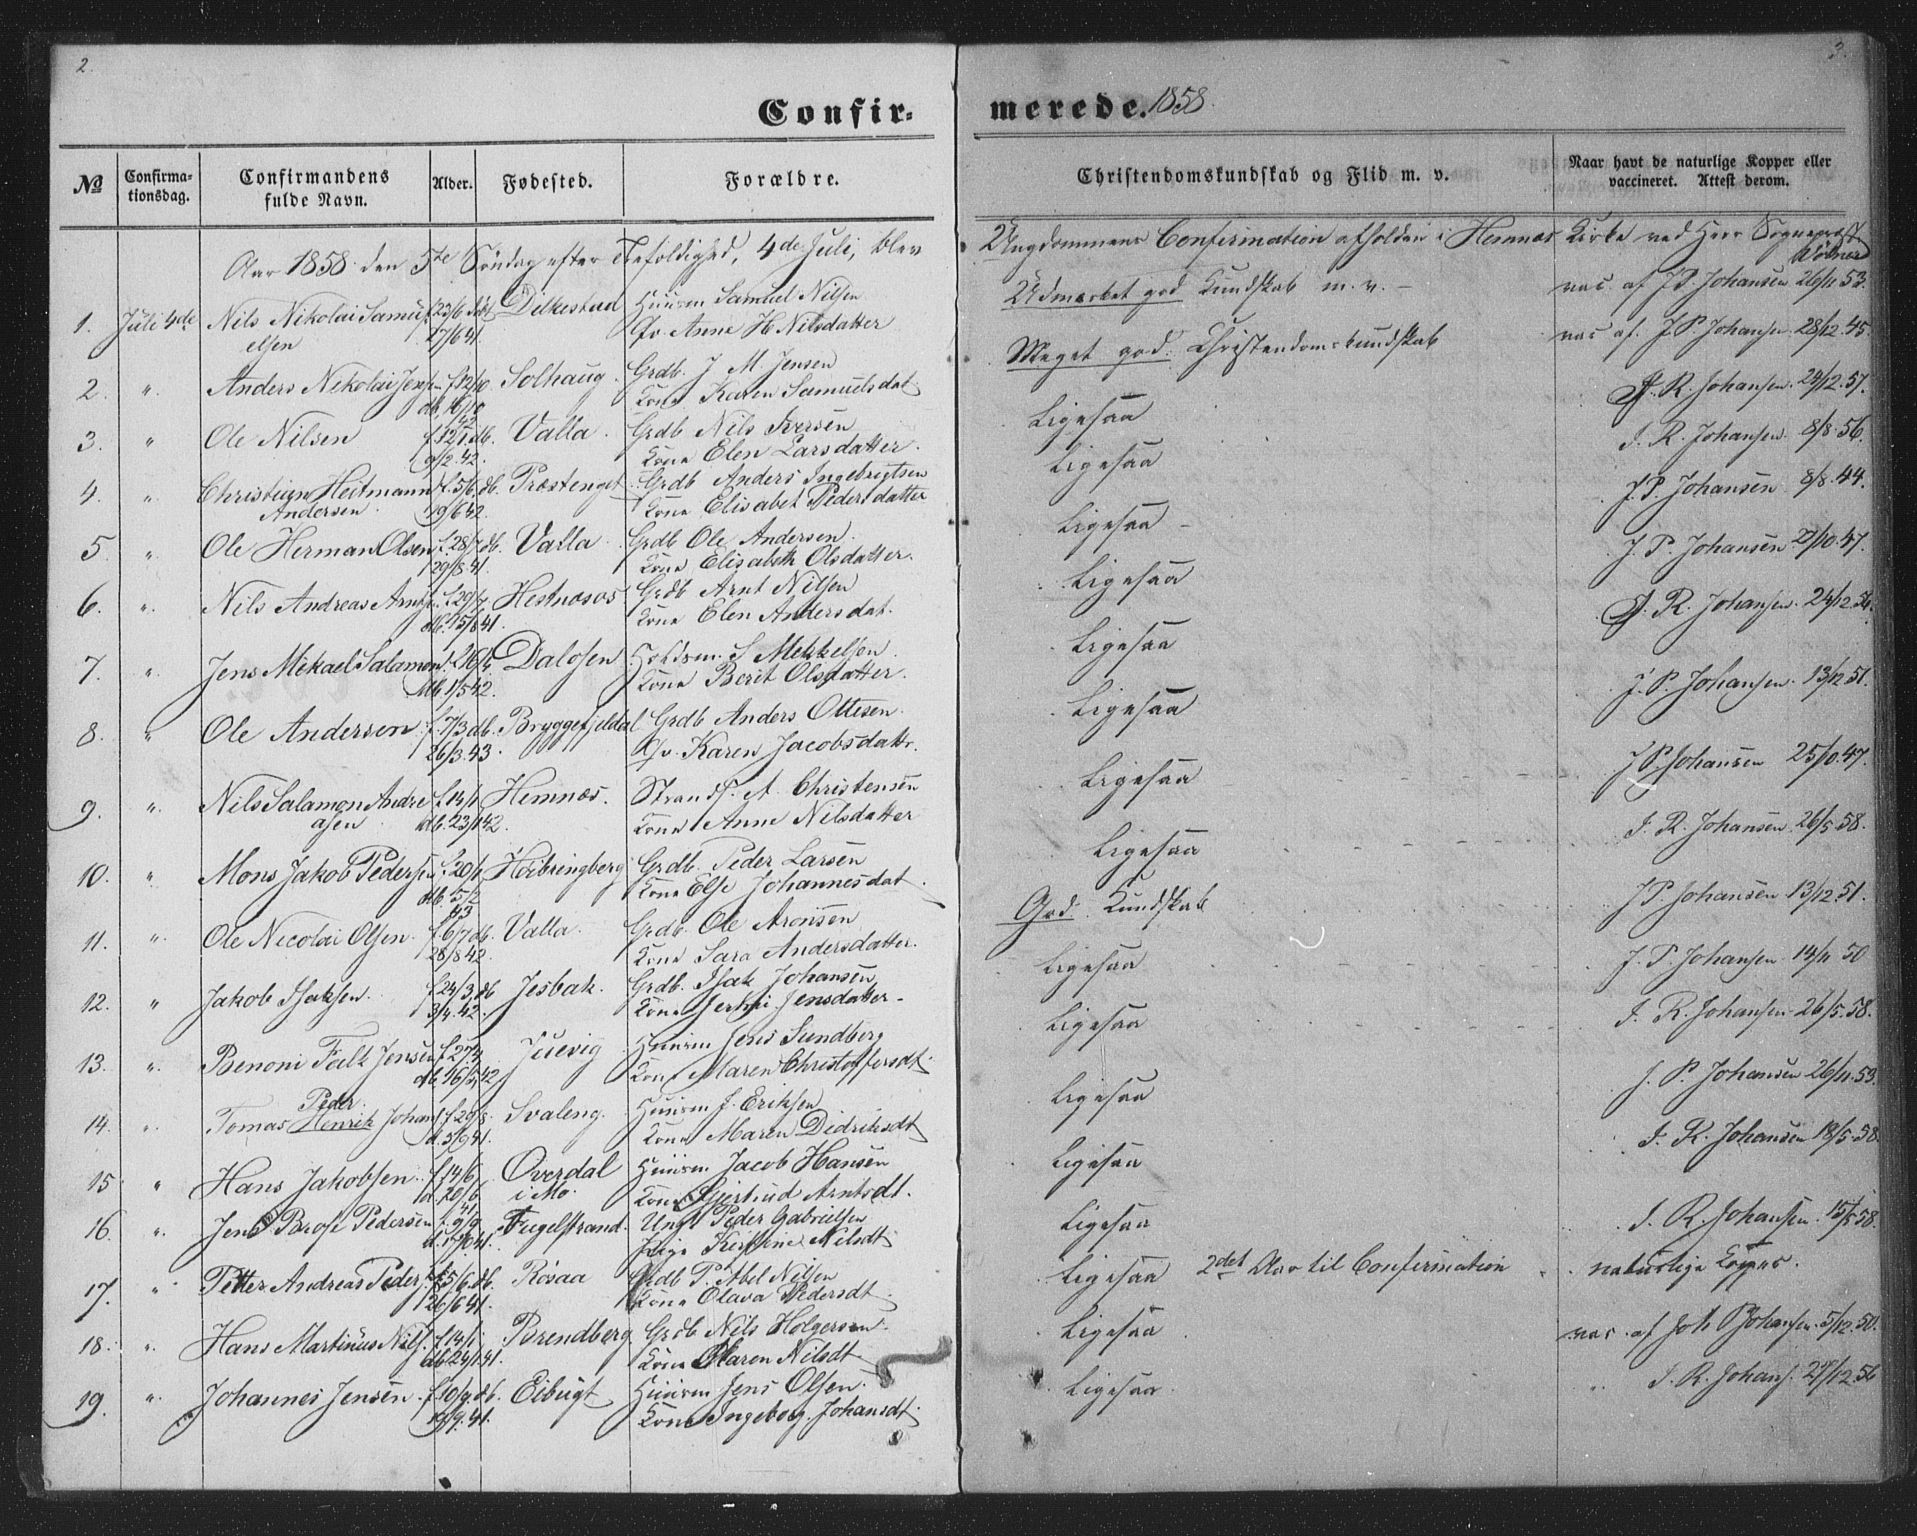 2.
3.
Confir-
merede. 1858.
№
Confirma-
tionsdag.
Confirmandens
fulde Navn.
Alder.
Fødested.
Forældre.
Christendomskundskab og Flid m. v.
Naar havt de naturlige Kopper eller
vaccineret. Attest derom.
Aar 1858 den 5te Søndag efter Trefoldighed, 4de Juli, blev Ungdommens Confirmation afholden i Hemnæs Kirke ved Herr Sognepræst
1. Juli 4de Nils Nikolai Samu- f. 23/6 døbt Dilkestad Huusm Samuel Nilsen Udmærket god Kundskab m. v. - vac. af J. P. Johansen 26/11 53.
elsen 27/6 41. Gv. Anne H Nilsdatter
2. " Anders Nikolai Jensen f. 12/10 Solhaug. Grdb. J M Jensen Meget god Christendomskundskab vac af J P Johansen 28/12 45.
db. 16/10 42 Kone Karen Samuelsdat
3. " Ole Nilsen f. 12/1 db. Valla. Grdb Nils Iversen Ligesaa R. Johansen 24/12 57.
9/2 42. Kone Elen Larsdatter.
4. " Christian Heitmann f. 5/6 db. Præstenget. Grdb Anders Ingebrigtsen Ligesaa J. R. Johansen. 8/8 56.
Andersen 19/6 42. Kone Elisabet Pedersdatter
5. " Ole Herman Olsen f. 28/7 db. Valla. Grdb Ole Andersen. Ligesaa - J. P. Johansen 8/8 44.
29/8 41. Kone Elisabeth Olsdatter.
6. " Nils Andreas Arntsen f. 29/7 Hestnæsøs Grdb Arnt Nilsen Ligesaa J. P. Johansen 2/10 47.
db. 15/8 41. Kone Elen Andersdat.
7. " Jens Mekael Salamon f. 26/4 Dalosen Holdsm. S Mekkelsen. Ligesaa R. Johansen. 24/12 56.
db. 1/5 42. Kone Berit Olsdatter.
8. " Ole Andersen f. 7/3 db. Bryggefjeldal Grdb Anders Ottesen. Ligesaa J. P. Johansen. 13/12 51.
26/3 43. Gv. Karen Jacobsdattr.
9. " Nils Salamon Andre f. 14/1 Hemnæs. Strands. A. Christensen Ligesaa J P Johansen 25/10 47.
asen db. 23/1 42. Kone Anne Nilsdatter
10. " Mons Jakob Pedersen f. 20/1 Heibringberg Grdb. Peder Larsen Ligesaa J. R. Johansen 26/5 58.
db. 5/2 43 Kone Else Johannesdat.
11. " Ole Nicolai Olsen. f. 6/7 db. Valla. Grdb. Ole Aronsen God Kundskab J P. Johansen 13/12 51.
28/8 42. Kone Sara Andersdatter.
12. " Jakob Isaksen. f. 24/3 db Jesbak. Grdb. Isak Johansen Ligesaa J. P. Johansen 14/11 50
3/4 42. Kone Jensdatter -
13. " Benoni Falk Jensen f. 27/4 Juvig Huusm Jens Sundberg Ligesaa J. R. Johansen 26/5 58.
db. 16/5 42 Kone Maren Christoffersdt.
14. " Peder
Tomas Henrik Johan f. 29/8 Svaleng. Huusm J. Eriksen Ligesaa J. P. Johansen 26/11 53.
d. 5/9 41. Kone Maren Didriksdt
15 " Hans Jakobsen. f. 14/6 Overdal Huusm Jacob Hansen Ligesaa J. R. Johansen 18/5 58.
d. 20/6 41 i Mo. Kone Gjertrud Arntsdt.
16. " Jens Parose Pedersen f. 9/9 Fugelstrand. Ungk Peder Gabrielsen Ligesaa J. R. Johansen. 15/5 58.
d. 17/10 41. Pige Kerstine Nilsdt
17. " Petter Andreas Peders f. 5/6 db. Røsaa Grdb P. Abel Nilsen Ligesaa 2det Aar til Confirmation naturlige Kopper.
26/6 41. Kone Olava Pedersdt.
18. " Hans Martinus Nils. f. 14/1 Brendberg Grdb Nils Holgersen. Ligesaa vac. af Joh P Johansen. 5/12 50.
db 24/1 41. Kone Maren Nilsdt.
19. " Johannes Jensen. f. 10/9 db. Eibugt Huusm Jens Olsen. Ligesaa. " J. R. Johans. 27/12 56
19/9 41. Kone Ingeborg Johansdt.